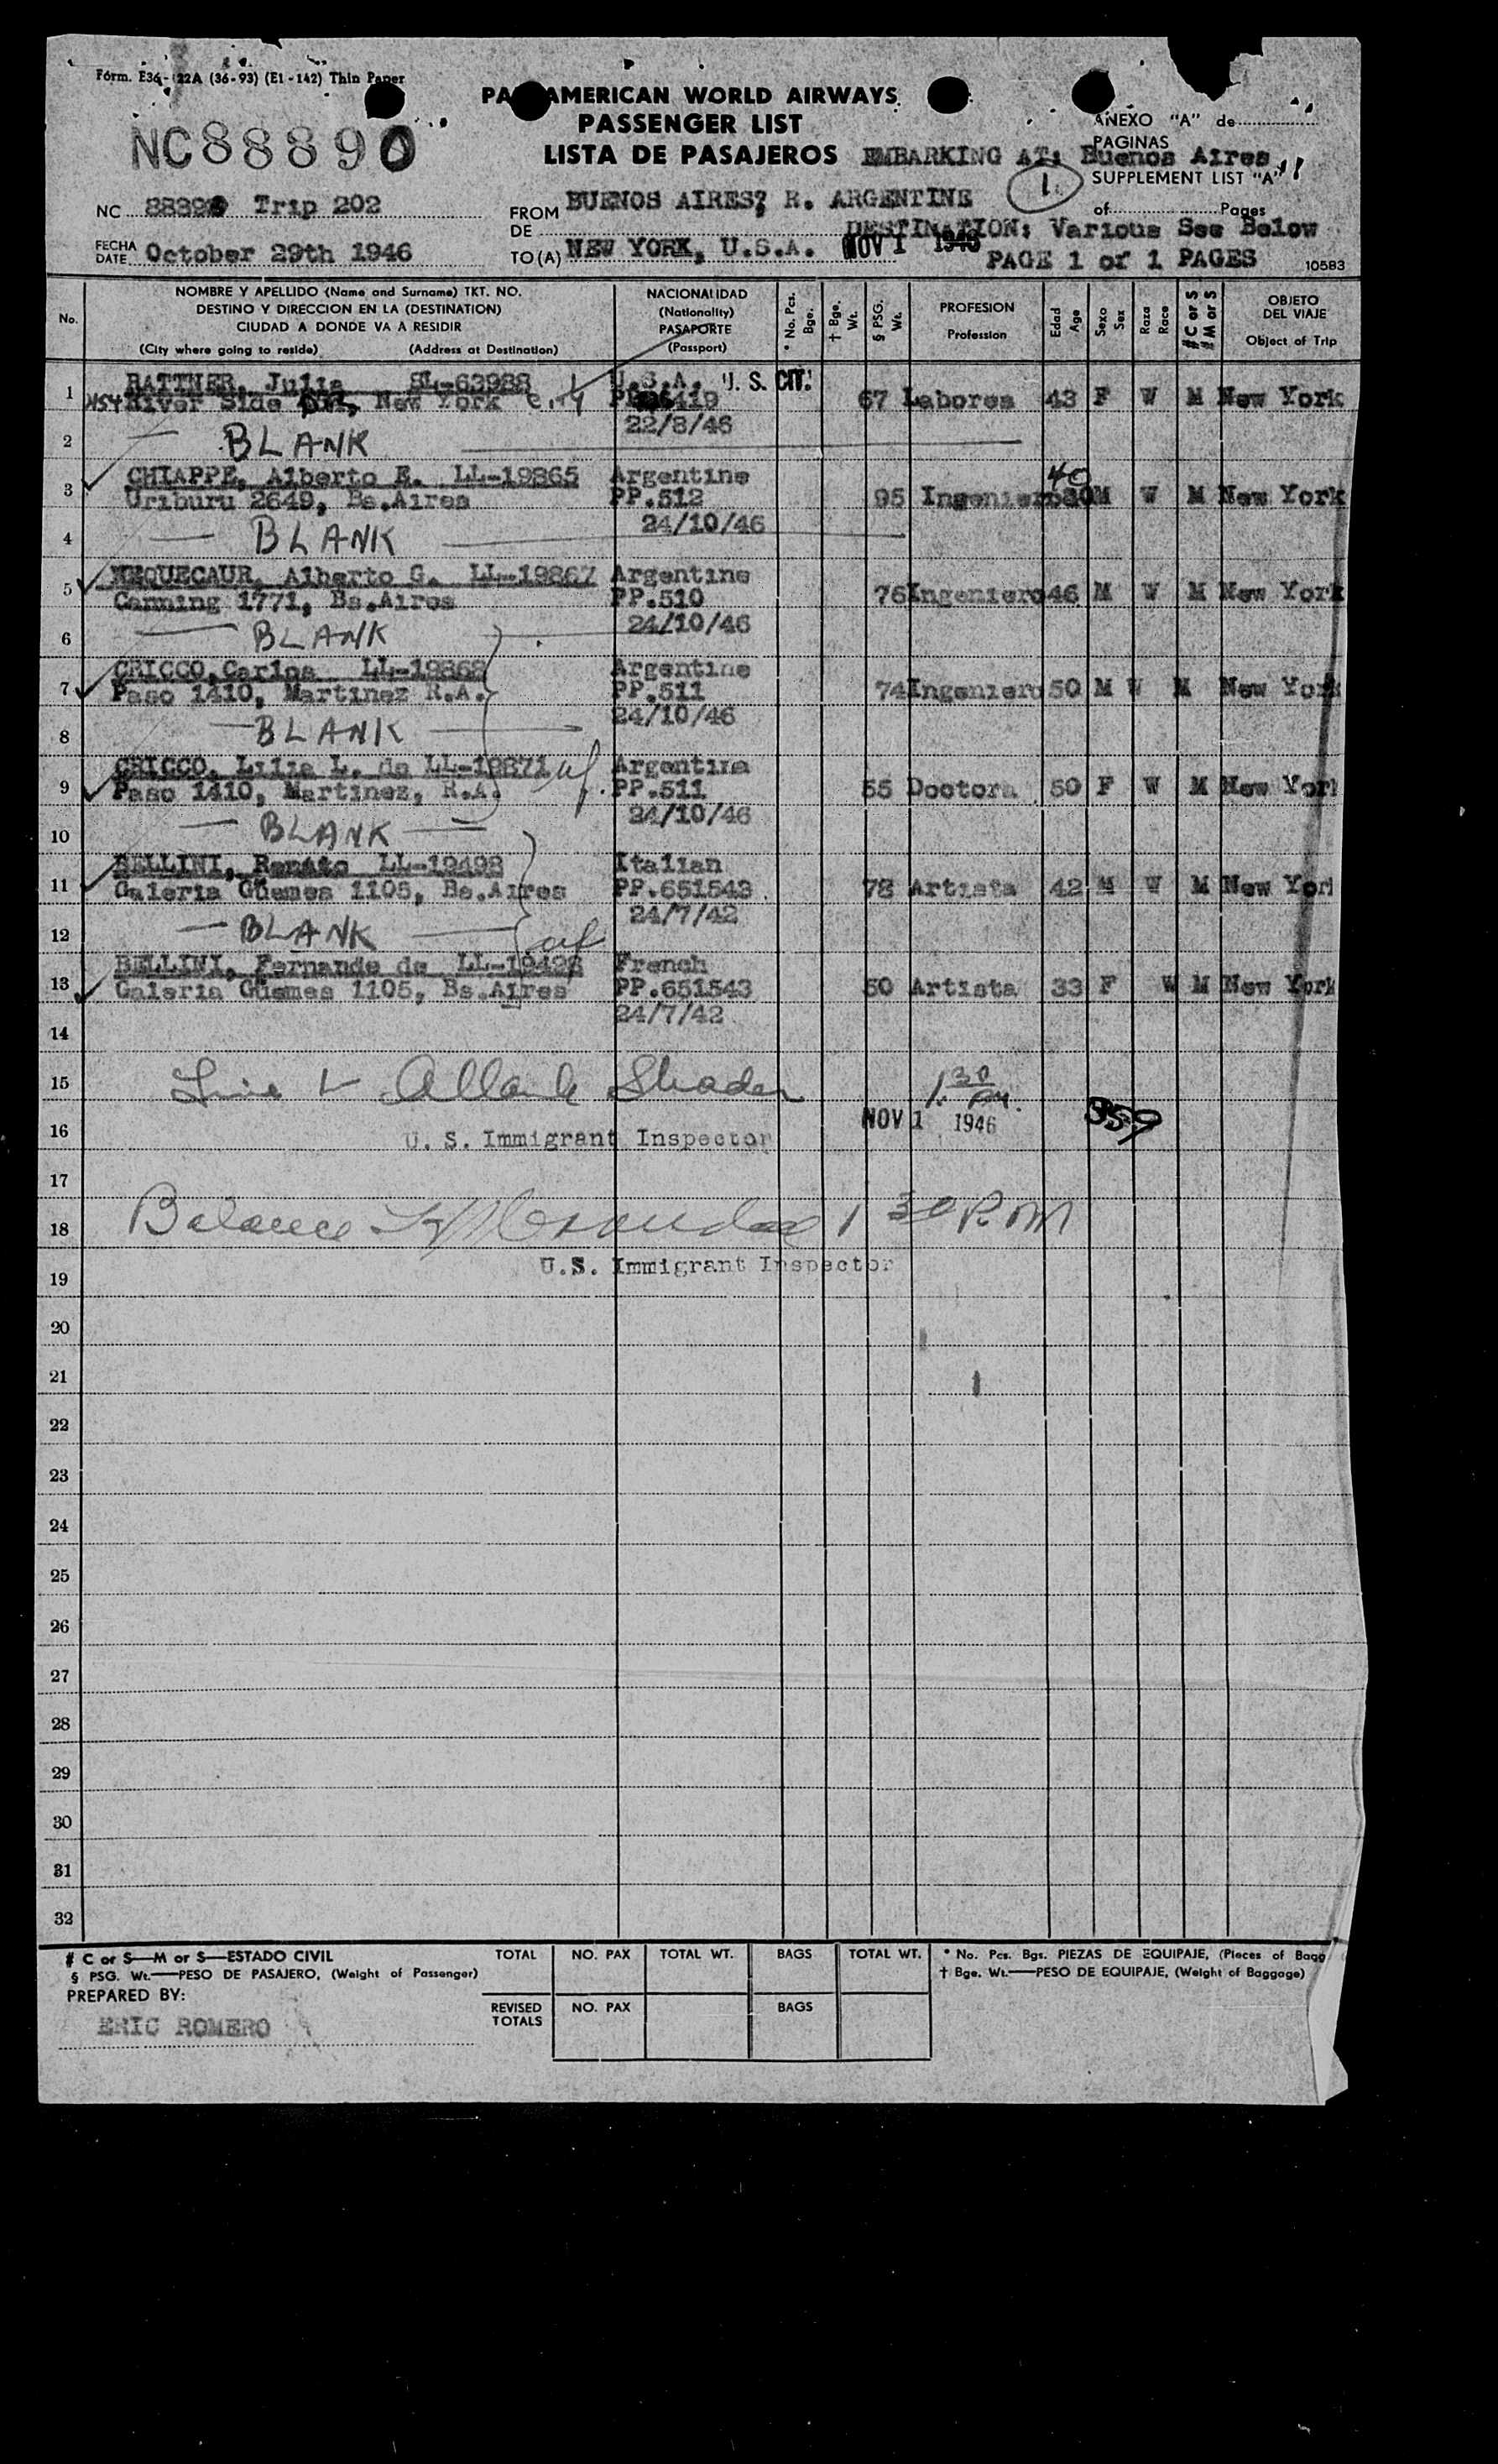 Form. E36-122A (36-93) (E1-142) Thin Paper
PAN AMERICAN WORLD AIRWAYS
PASSENGER LIST
LISTA DE PASAJEROS EMBARKING AT: Buenos Aires
NC88890
ANEXO "A" de
PAGINAS
SUPPLEMENT LIST "A"
1
of Pages
NC 88890 Trip 202
FROM BUENOS AIRES, R. ARGENTINE
DE
DESTINATION: Various See Below
FECHA
DATE October 29th 1946
TO (A) NEW YORK, U.S.A. NOV 1 1946
PAGE 1 of 1 PAGES
10583
No.
NOMBRE Y APELLIDO (Name and Surname) TKT. NO.
DESTINO Y DIRECCION EN LA (DESTINATION)
CIUDAD A DONDE VA A RESIDIR
(City where going to reside) (Address at Destination)
NACIONALIDAD
(Nationality)
PASAPORTE
(Passport)
* No. Pcs. Bge.
† Bge. Wt.
§ PSG. Wt.
PROFESION
Profession
Edad Age
Sexo Sex
Raza Race
# C or S
# M or S
OBJETO
DEL VIAJE
Object of Trip
1 RATTNER, Julia SL-63988 U.S.A. U. S. CIT.
454 River Side, New York City 419 67 Labores 43 F W M New York
22/8/46
2 — BLANK
3 CHIAPPE, Alberto E. LL-19865 Argentine 40
Uriburu 2649, Bs.Aires PP.512 95 Ingeniero 30 M W M New York
24/10/46
4 — BLANK
5 Alberto G. LL-19867 Argentine
Canning 1771, Bs.Aires PP.510 76 Ingeniero 46 M W M New York
24/10/46
6 — BLANK
7 CRICCO, Carlos LL-19868 Argentine
Paso 1410, Martinez R.A. PP.511 74 Ingeniero 50 M W M New York
24/10/46
8 — BLANK —
9 CRICCO, Lilia L. de LL-19871 wf Argentina
Paso 1410, Martinez, R.A. PP.511 55 Doctora 50 F W M New York
24/10/46
10 — BLANK —
11 BELLINI, Renato LL-19498 Italian
Galeria Güemes 1105, Bs.Aires PP.651543 78 Artista 42 M W M New York
24/7/42
12 — BLANK — wf
13 BELLINI, Fernande de LL-19498 French
Galeria Güemes 1105, Bs.Aires PP.651543 50 Artista 33 F W M New York
24/7/42
14
15 Line 1 1:30 PM.
16 U. S. Immigrant Inspector NOV 1 1946 359
17
18 Balance 1 30 P.M
19 U.S. Immigrant Inspector
20
21
22
23
24
25
26
27
28
29
30
31
32
# C or S—M or S—ESTADO CIVIL
§ PSG. Wt.—PESO DE PASAJERO, (Weight of Passenger)
PREPARED BY:
ERIC ROMERO
TOTAL NO. PAX TOTAL WT. BAGS TOTAL WT.
REVISED TOTALS NO. PAX BAGS
* No. Pcs. Bgs. PIEZAS DE EQUIPAJE, (Pieces of Bagg
† Bge. Wt.—PESO DE EQUIPAJE, (Weight of Baggage)